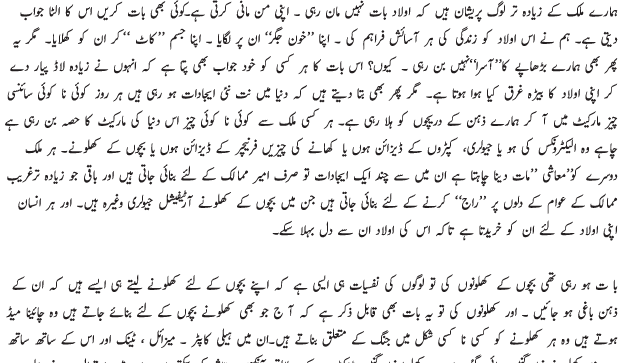 ہمارے ملک کے زیادہ تر لوگ پریشان ہیں کہ اولاد بات نہیں مان رہی ۔ اپنی من مانی کرتی ہے۔کوئی بھی بات کریں اس کا الٹا جواب
دیتی ہے۔ ہم نے اس اولاد کو زندگی کی ہر آسائش فراہم کی ۔ اپنا ’’خون جگر‘‘ ان پر لگایا ۔ اپنا جسم ’’کاٹ ‘‘کر ان کو کھلایا۔ مگر یہ
پھر بھی ہمارے بڑھاپے کا’’آسرا‘‘نہیں بن رہی ۔ کیوں؟ اس بات کا ہر کسی کو خود جواب بھی پتا ہے کہ انہوں نے زیادہ لاڈ پیار دے
کر اپنی اولاد کا بیڑہ غرق کیا ہوا ہوتا ہے۔ مگر پھر بھی بتا دیتے ہیں کہ دنیا میں نت نئی ایجادات ہو رہی ہیں ہر روز کوئی نا کوئی سائنسی
چیز مارکیٹ میں آ کر ہمارے ذہن کے دریچوں کو ہلا رہی ہے۔ ہر کسی ملک سے کوئی نا کوئی چیز اس دنیا کی مارکیٹ کا حصہ بن رہی ہے
چاہے وہ الیکٹرونکس کی ہو یا جیولری، کپڑوں کے ڈیزائن ہوں یا کھانے کی چیزیں فرنیچر کے ڈیزائن ہوں یا بچوں کے کھلونے۔ ہر ملک
دوسرے کو’’معاشی ‘‘مات دینا چاہتا ہے ان میں سے چند ایک ایجادات تو صرف امیر ممالک کے لئے بنائی جاتی ہیں اور باقی جو زیادہ ترغریب
ممالک کے عوام کے دلوں پر ’’راج‘‘ کرنے کے لئے بنائی جاتی ہیں جن میں بچوں کے کھلونے آرٹیفیشل جیولری وغیرہ ہیں۔ اور ہر انسان
اپنی اولاد کے لئے ان کو خریدتا ہے تاکہ اس کی اولاد ان سے دل بہلا سکے۔
با ت ہو رہی تھی بچوں کے کھلونوں کی تو لوگوں کی نفسیات ہی ایسی ہے کہ اپنے بچوں کے لئے کھلونے لیتے ہی ایسے ہیں کہ ان کے
ذہن باغی ہو جائیں ۔ اور کھلونوں کی تو یہ بات بھی قابل ذکر ہے کہ آ ج جو بھی کھلونے بچوں کے لئے بنائے جاتے ہیں وہ چائینا میڈ
ہوتے ہیں وہ ہر کھلونے کو کسی نا کسی شکل میں جنگ کے متعلق بناتے ہیں۔ان میں ہیلی کاپٹر ۔ میزائل ، ٹینک اور اس کے ساتھ ساتھ